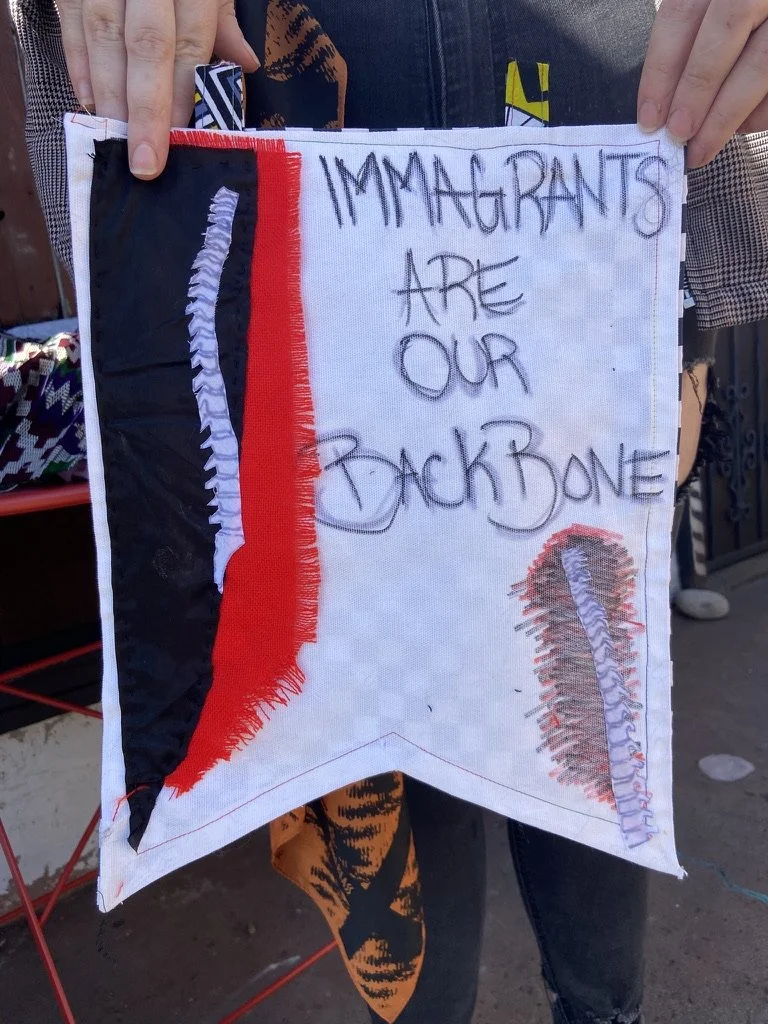 IMMAGRANTS
ARE
OUR
BACKBONE